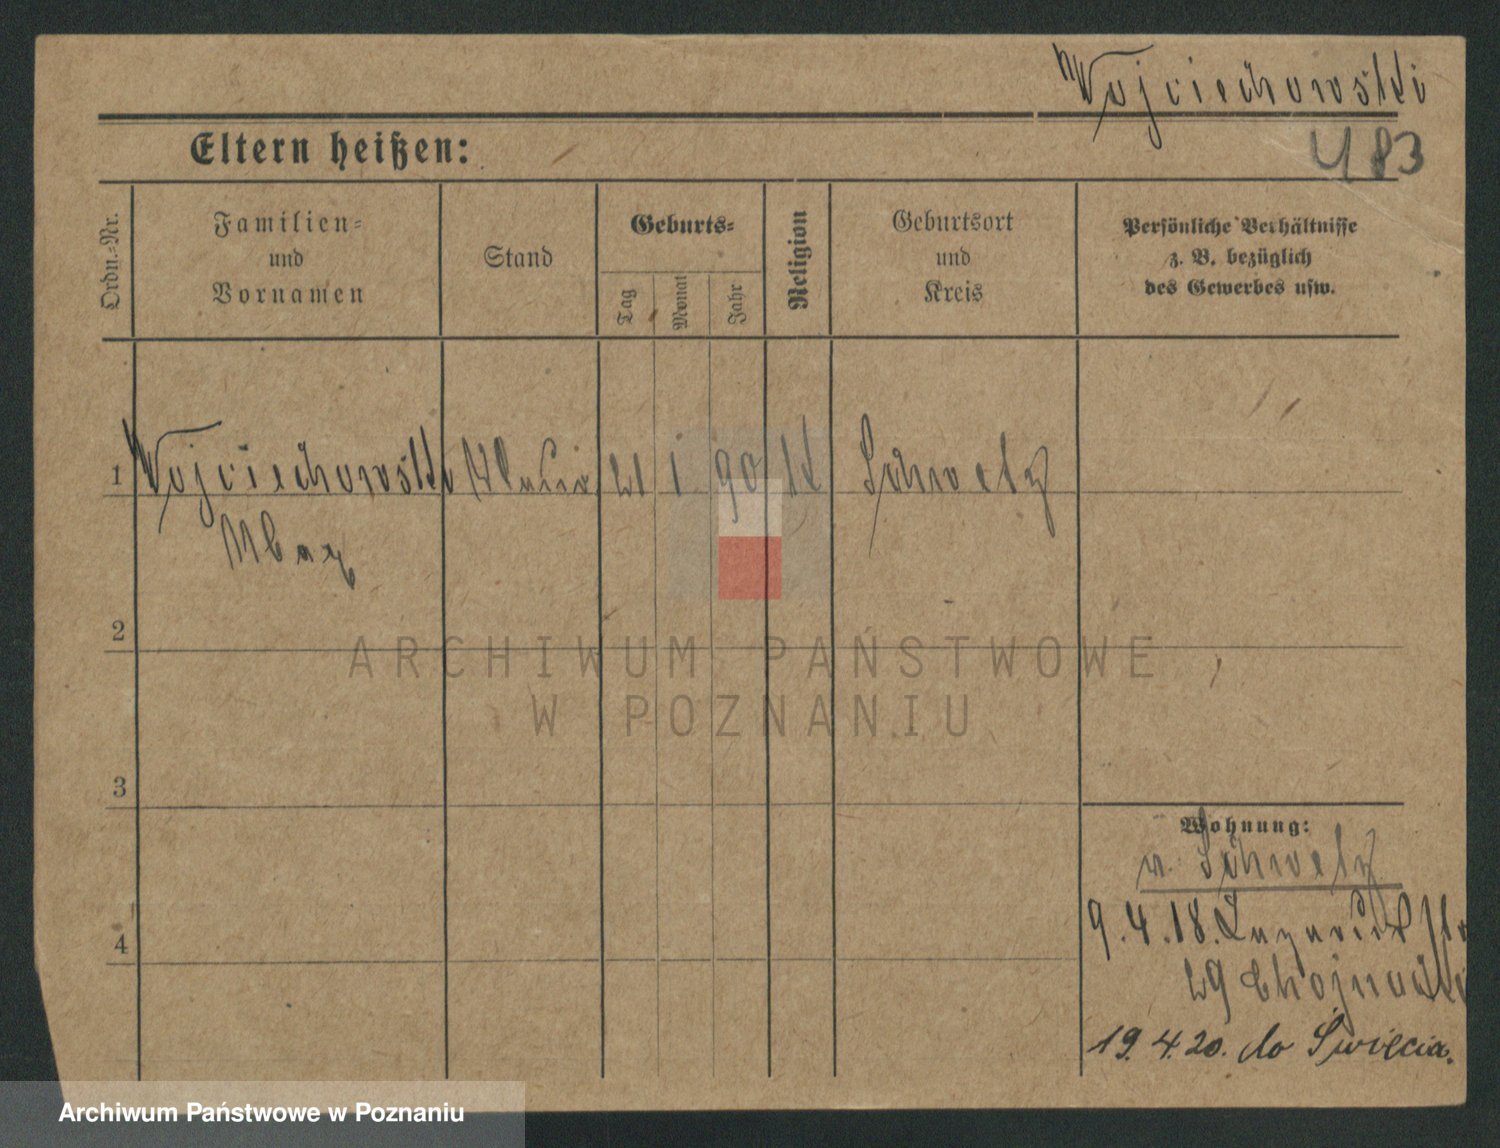 Wojciechowski
483
Eltern heißen:
Ordn.-Nr.
Familien- und Vornamen
Stand
Geburts-
Tag
Monat
Jahr
Religion
Geburtsort und Kreis
Persönliche Verhältnisse z. B. bezüglich des Gewerbes usw.
1 Wojciechowski 21 1 90 kt Schwetz
Max
2
3
4
Wohnung:
v. Schwetz
9.4.18. Lazarus
29 Chojnacki
19.4.20. do Świecia.
ARCHIWUM PAŃSTWOWE
W POZNANIU
Archiwum Państwowe w Poznaniu